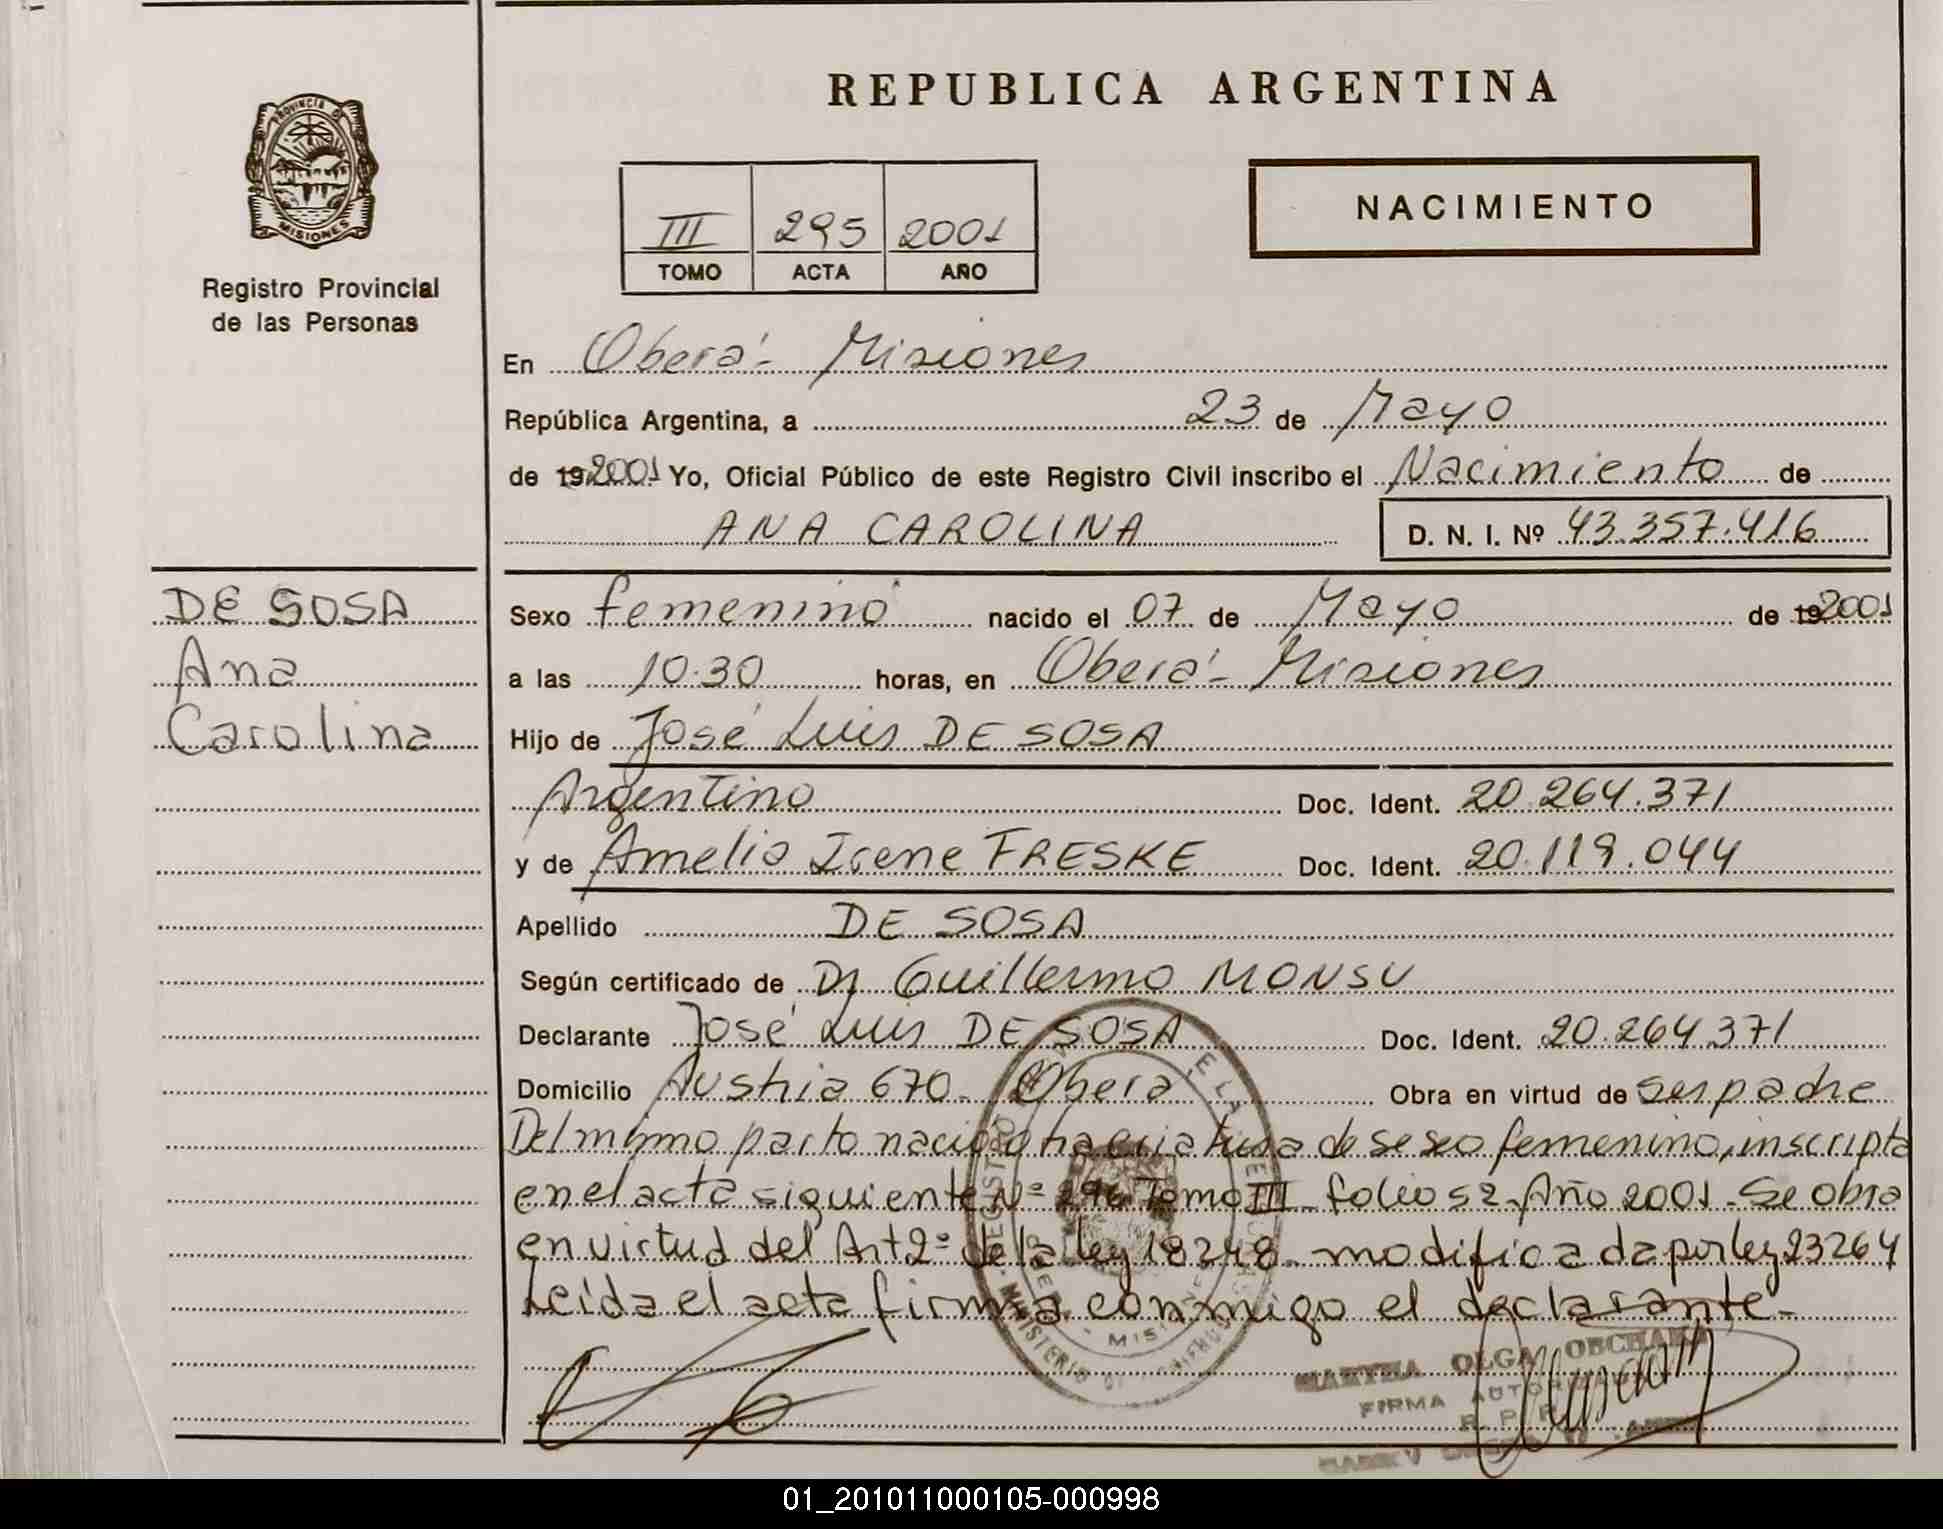 REPUBLICA ARGENTINA
PROVINCIA DE
MISIONES
Registro Provincial
de las Personas
III 295 2001
TOMO ACTA AÑO
NACIMIENTO
En Oberá - Misiones
República Argentina, a 23 de Mayo
de 19 2001 Yo, Oficial Público de este Registro Civil inscribo el Nacimiento de
ANA CAROLINA D. N. I. Nº 43.357.416
DE SOSA
Ana
Carolina
Sexo femenino nacido el 07 de Mayo de 19 2001
a las 10.30 horas, en Oberá - Misiones
Hijo de José Luis DE SOSA
Argentino Doc. Ident. 20.264.371
y de Amelia Irene FRESKE Doc. Ident. 20.119.044
Apellido DE SOSA
Según certificado de Dr Guillermo MONSU
Declarante José Luis DE SOSA Doc. Ident. 20.264.371
Domicilio Austria 670 - Oberá Obra en virtud de ser padre
Del mismo parto nació otra criatura de sexo femenino, inscripta
en el acta siguiente Nº 296 Tomo III folio 52 - Año 2001 - Se obra
en virtud del Art 2º de la ley 18248 - modificada por ley 23264
Leída el acta firma conmigo el declarante -
MARTHA OLGA
FIRMA
01_201011000105-000998